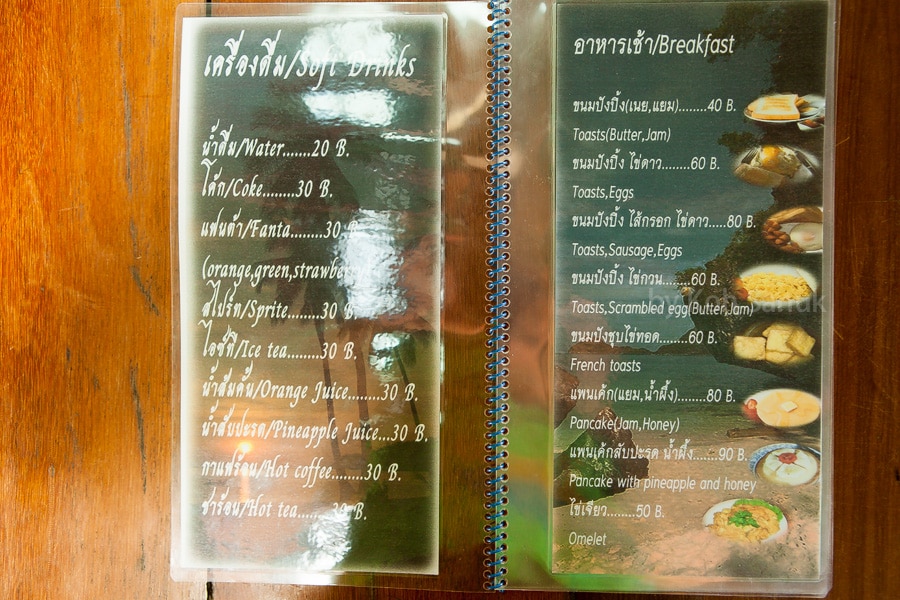 เครื่องดื่ม/Soft Drinks
น้ำดื่ม/Water.......20 B.
โค้ก/Coke........30 B.
แฟนต้า/Fanta........30 B.
(orange,green,strawberry)
สไปร์ต/Sprite........30 B.
ไอซ์ที/Ice tea........30 B.
น้ำส้มคั้น/Orange Juice........30 B.
น้ำสับปะรด/Pineapple Juice...30 B.
กาแฟร้อน/Hot coffee.......30 B.
ชาร้อน/Hot tea.......30 B.
อาหารเช้า/Breakfast
ขนมปังปิ้ง(เนย,แยม)........40 B.
Toasts(Butter,Jam)
ขนมปังปิ้ง ไข่ดาว........60 B.
Toasts,Eggs
ขนมปังปิ้ง ไส้กรอก ไข่ดาว.....80 B.
Toasts,Sausage,Eggs
ขนมปังปิ้ง ไข่กวน........60 B.
Toasts,Scrambled egg(Butter,Jam)
ขนมปังชุบไข่ทอด........60 B.
French toasts
แพนเค้ก(แยม,น้ำผึ้ง)........80 B.
Pancake(Jam,Honey)
แพนเค้กสับปะรด น้ำผึ้ง.......90 B.
Pancake with pineapple and honey
ไข่เจียว........50 B.
Omelet